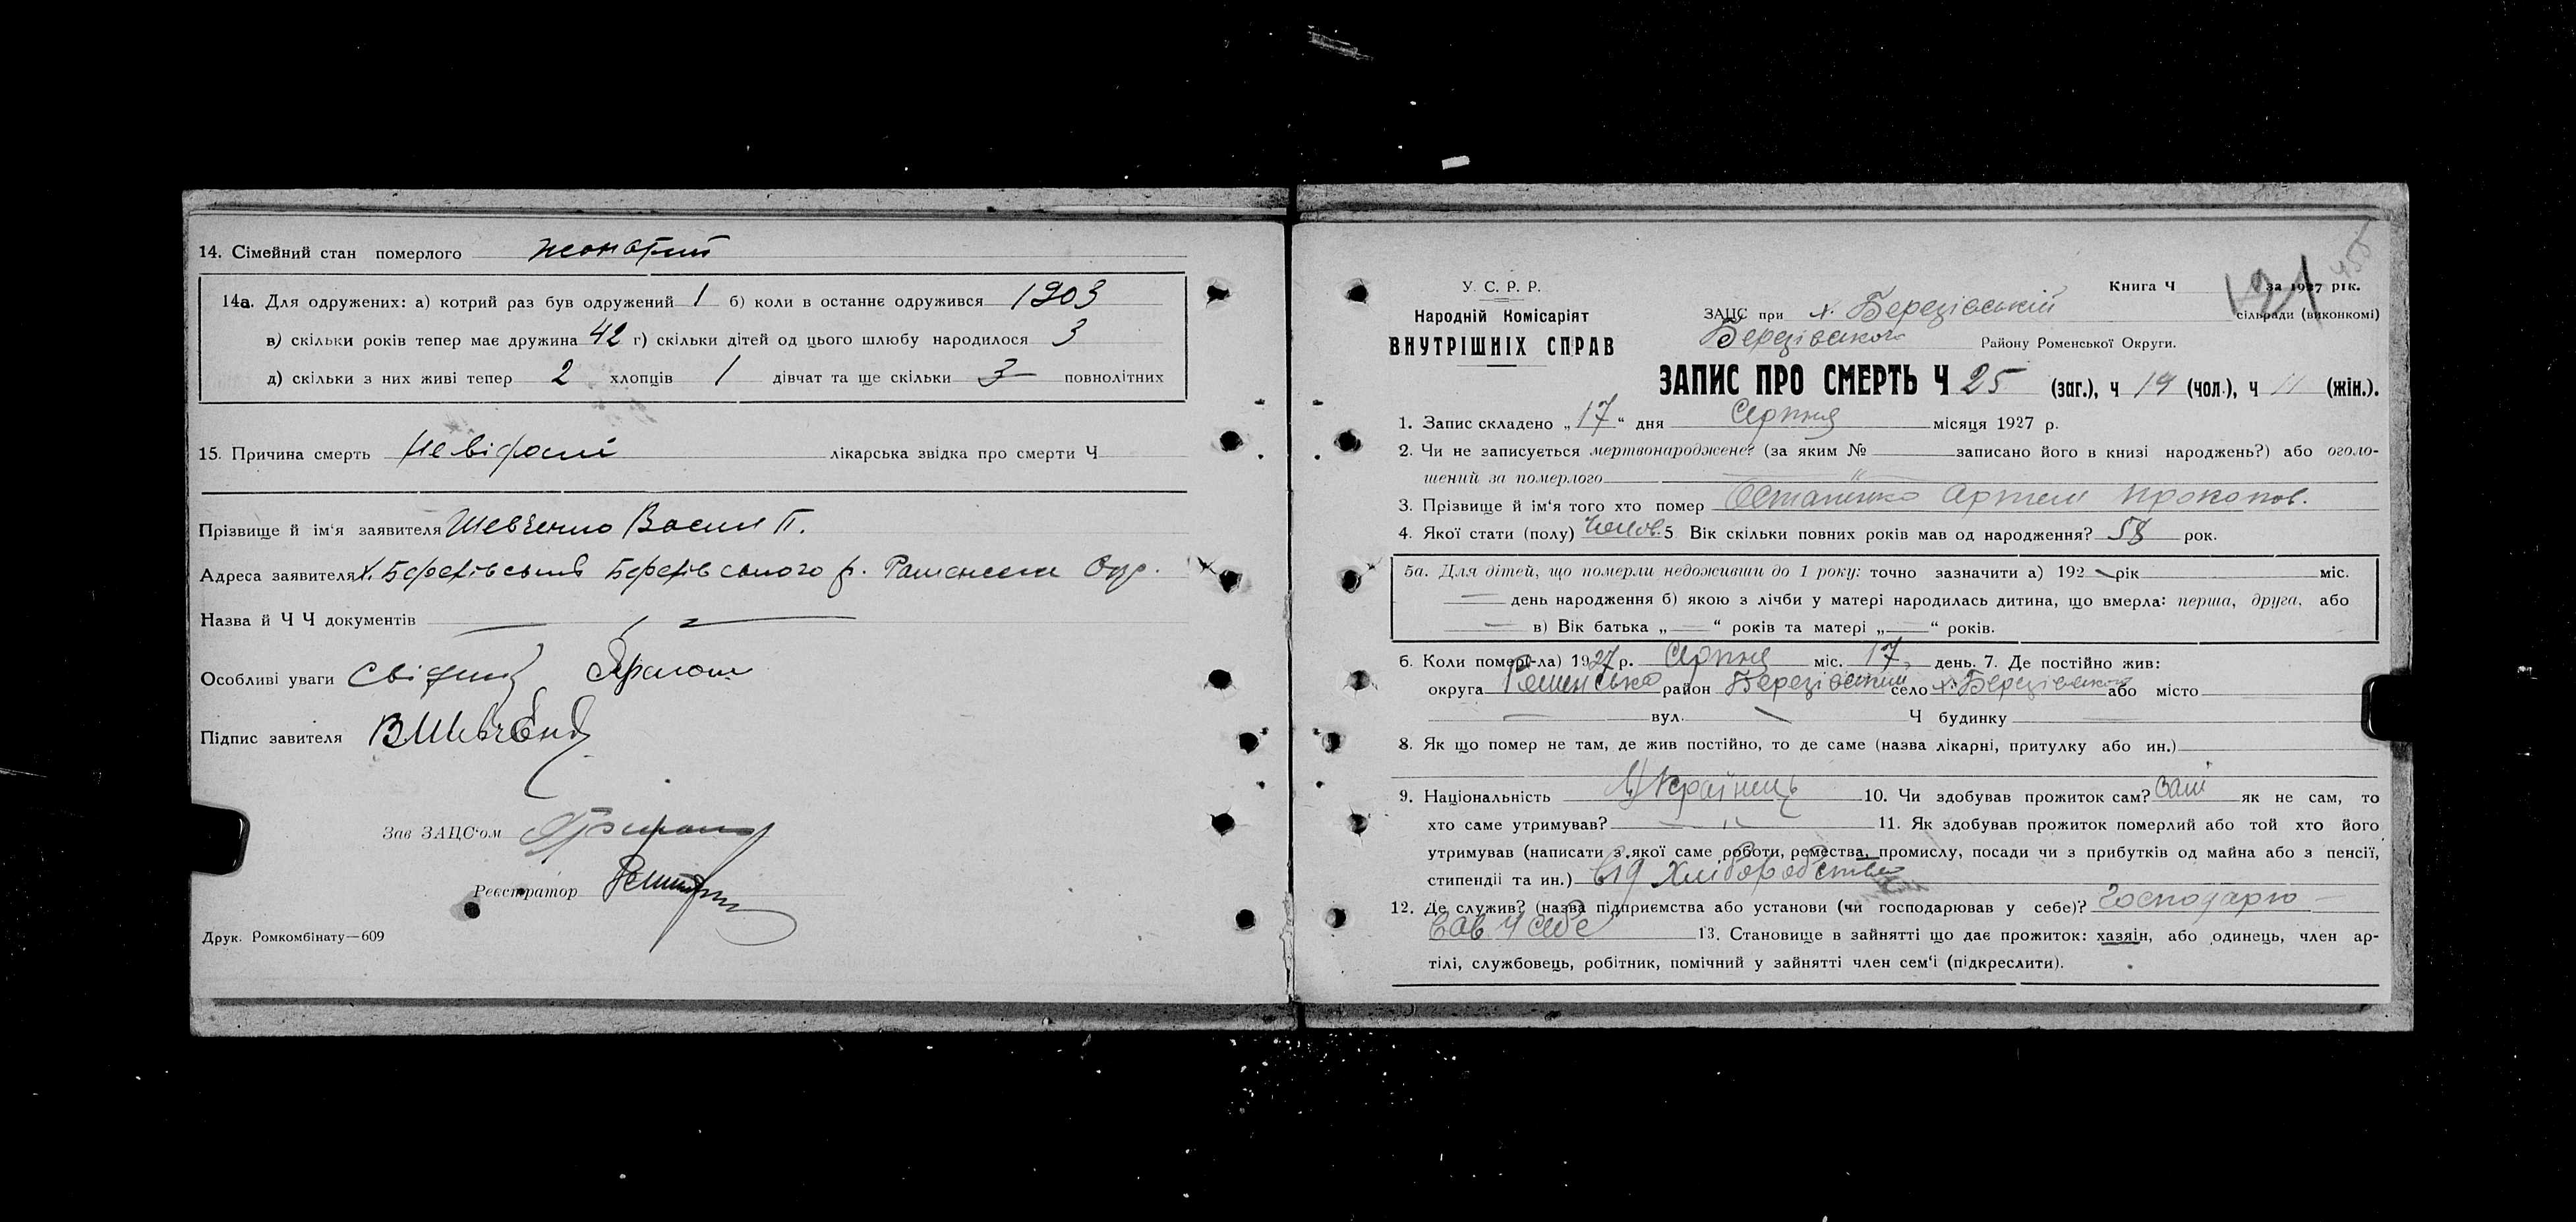 14. Сімейний стан померлого жонатий
14а. Для одружених: а) котрий раз був одружений 1 б) коли в останнє одружився 1903
в) скільки років тепер має дружина 42 г) скільки дітей од цього шлюбу народилося 3
д) скільки з них живі тепер 2 хлопців 1 дівчат та ще скільки 3 повнолітних
15. Причина смерть лікарська звідка про смерти Ч
Прізвище й ім'я заявителя Шевченко П.
Адреса заявителя х. р. Окр.
Назва й Ч Ч документів
Особливі уваги
Підпис завителя
Зав ЗАЦС'ом
Реєстратор
Друк. Ромкомбінату—609
121
У. С. Р. Р.
Книга Ч за 1927 рік.
Народній Комісаріят
ВНУТРІШНІХ СПРАВ
ЗАЦС при х. Березівській сільради (виконкомі)
Березівского Району Роменської Округи.
ЗАПИС ПРО СМЕРТЬ Ч 25 (заг.), ч 14 (чол.), ч 11 (жін.).
1. Запис складено „17“ дня Серпня місяця 1927 р.
2. Чи не записується мертвонароджене? (за яким № записано його в книзі народжень?) або оголо-
шений за померлого
3. Прізвище й ім'я того хто помер Остапенко Артем Прокопов.
4. Якої стати (полу) Чолов. 5 Вік скільки повних років мав од народження? 58 рок.
5а. Для дітей, що померли недоживши до 1 року: точно зазначити а) 192 рік міс.
день народження б) якою з лічби у матері народилась дитина, що вмерла: перша, друга, або
в) Вік батька „ “ років та матері „ “ років.
6. Коли помер(-ла) 1927 р. Серпня міс. 17 день. 7. Де постійно жив:
округа Роменсько район Березівский село х. Березівского або місто
вул. Ч будинку
8. Як що помер не там, де жив постійно, то де саме (назва лікарні, притулку або ин.)
9. Національність Українець 10. Чи здобував прожиток сам? сам як не сам, то
хто саме утримував? 11. Як здобував прожиток померлий або той хто його
утримував (написати з якої саме роботи, ремества, промислу, посади чи з прибутків од майна або з пенсії,
стипендії та ин.) від Хліборобства
12. Де служив? (назва підприємства або установи (чи господарював у себе)? господарю-
вав у себе 13. Становище в зайнятті що дає прожиток: хазяїн, або одинець, член ар-
тілі, службовець, робітник, помічний у зайнятті член сем'ї (підкреслити).